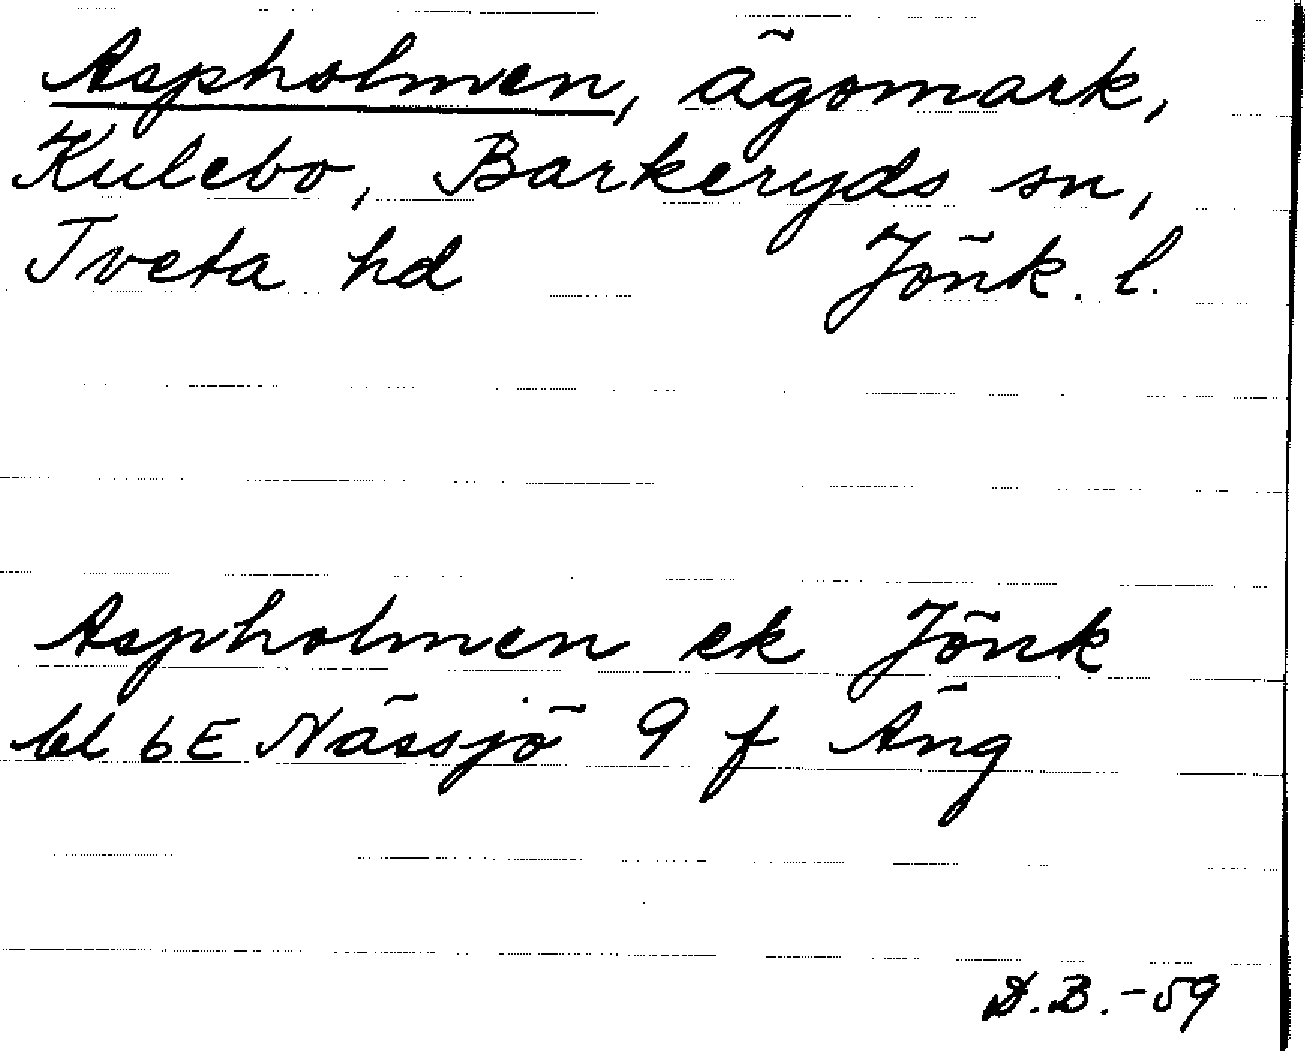 Aspholmen, ägomark,
Kulebo, Barkeryds sn,
Tveta hd Jönk. l.
Aspholmen ek Jönk
bl 6E Nässjö 9 f Äng
D.B.-59